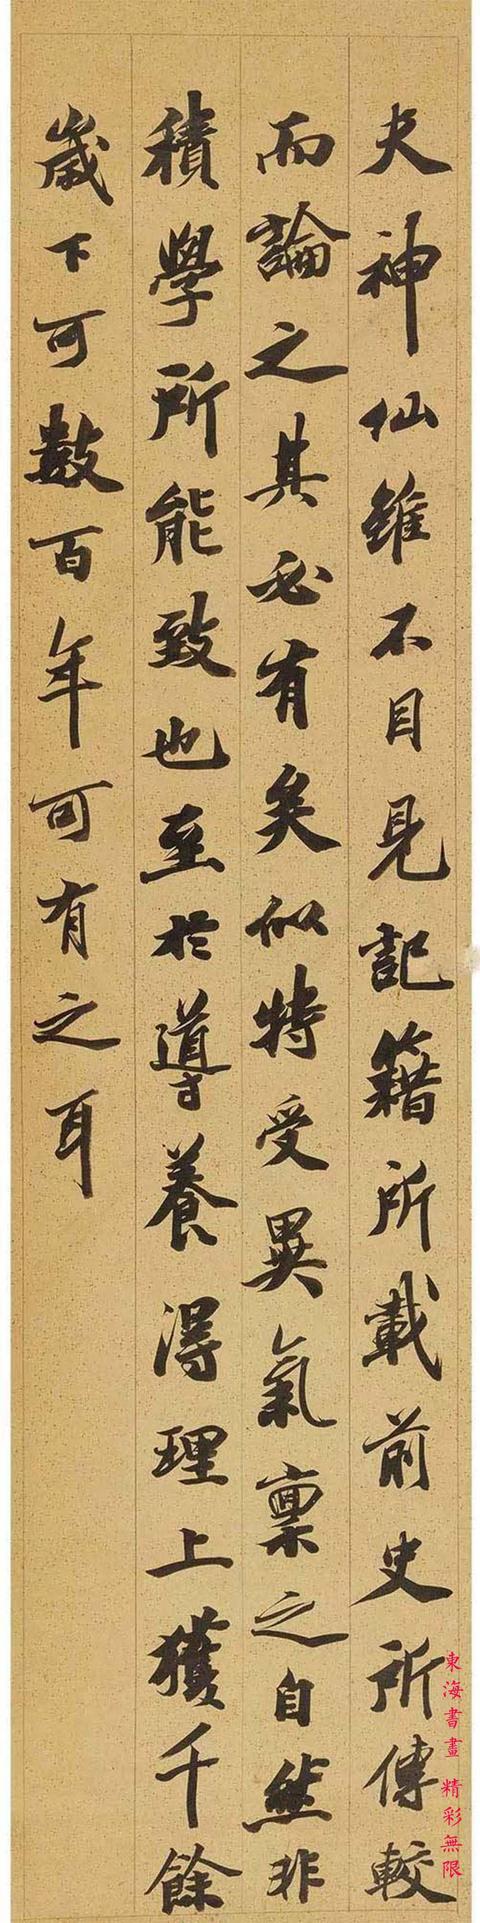 夫神仙雖不目見記籍所載前史所傳較
而論之其必有矣似特受異氣稟之自然非
積學所能致也至於導養得理上獲千餘
歲下可數百年可有之耳
東海書畫 精彩無限